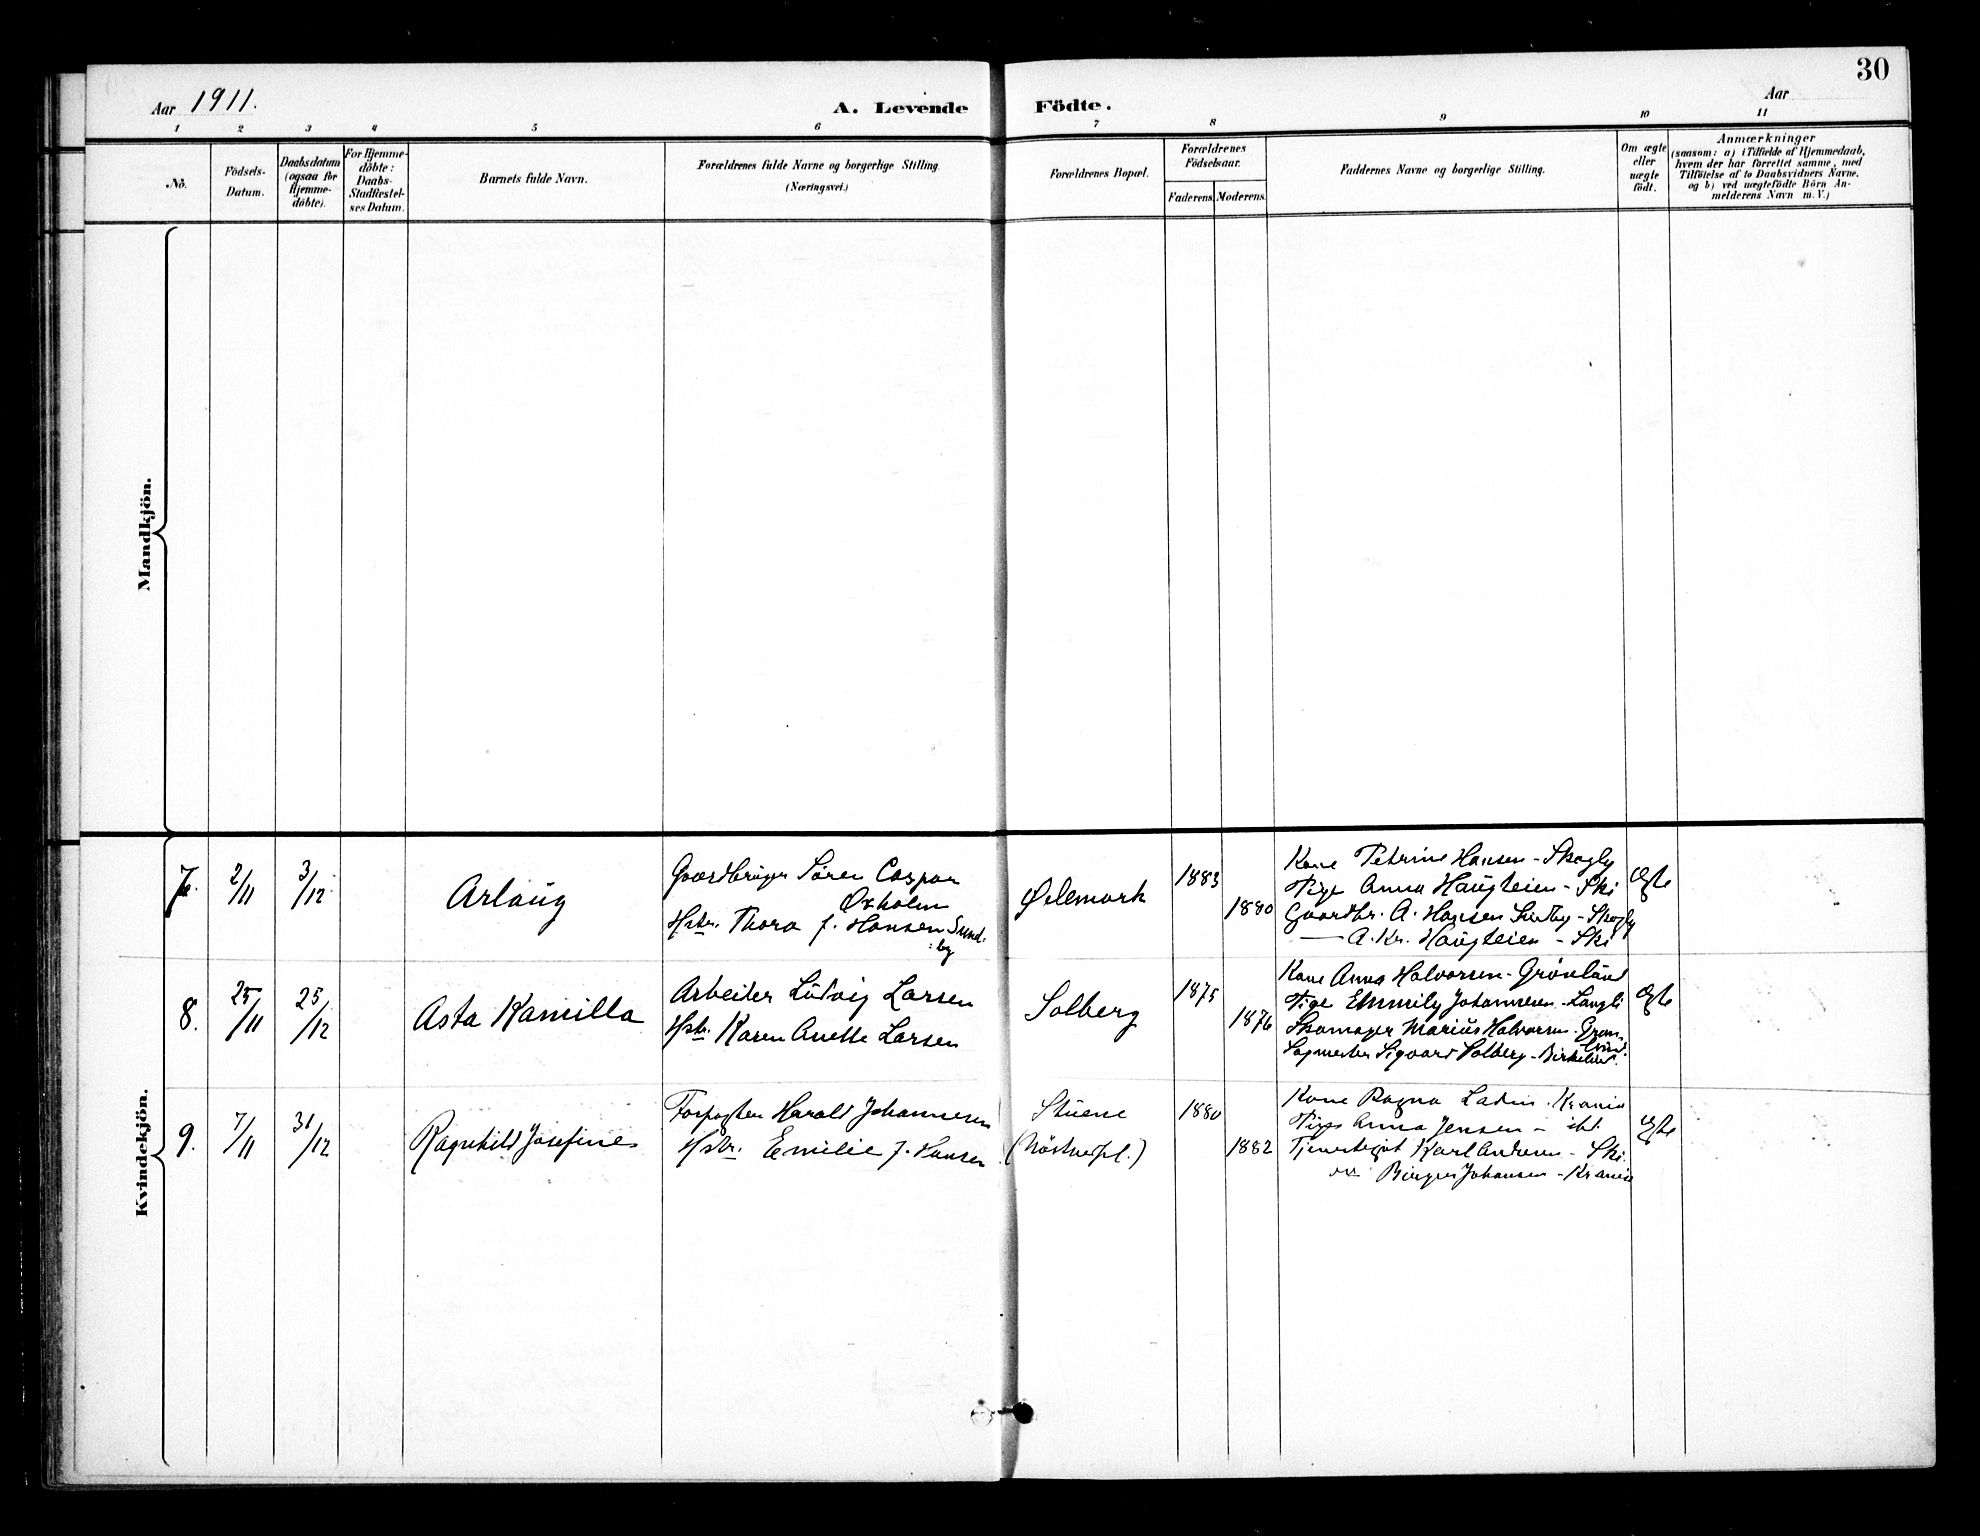 30
Aar 1911.
A. Levende Födte.
Aar
1 2 3 4 5 6 7 8 9 10 11
No.
Födsels-Datum.
Daabsdatum (ogsaa for Hjemme-döbte).
For Hjemme-döbte: Daabs-Stadfæstel-ses Datum.
Barnets fulde Navn.
Forældrenes fulde Navne og borgerlige Stilling.
(Næringsvei.)
Forældrenes Bopæl.
Forældrenes Födselsaar.
Faderens. Moderens.
Faddernes Navne og borgerlige Stilling.
Om ægte eller uægte födt.
Anmærkninger
(saasom: a) i Tilfælde af Hjemmedaab,
hvem der har forrettet samme, med
Tilföielse af to Daabsvidners Navne,
og b) ved uægtefödte Börn An-
melderens Navn m. V.)
Mandkjön.
Kvindekjön.
7. 2/11 3/12 Arlaug
Gaardbruger Søren Caspar
Oxholm
Hstr. Thora f. Hansen Sund-
by
Ørlemark
1883
1880
Kone Petrine Hansen - Skogly
Pige Anna Haugteien - Ski
Gaardbr. A. Hansen Sundby - Skogly
— A. Kr. Haugteien - Ski
Ægte
8. 25/11 25/12 Asta Kamilla
Arbeider Ludvig Larsen
Hstr. Karen Anette Larsen
Solberg
1875
1876
Kone Anna Halvorsen - Grønlund
Pige Emmily Johannesen - Langli
Skomager Marius Halvorsen - Grøn-
lund.
Sagmester Sigvard Solberg - Birkelund.
Ægte
9. 7/11 31/12 Ragnhild Josefine
Forpagter Harald Johannesen
Hstr. Emilie f. Hansen
Stuene
(Nöstvedpl.)
1880
1882
Kone Ragna - Krania
Pige Anna Jensen - ibd.
Tjenestegut Karl Andersen - Ski
Birger Johansen - Krania
Ægte